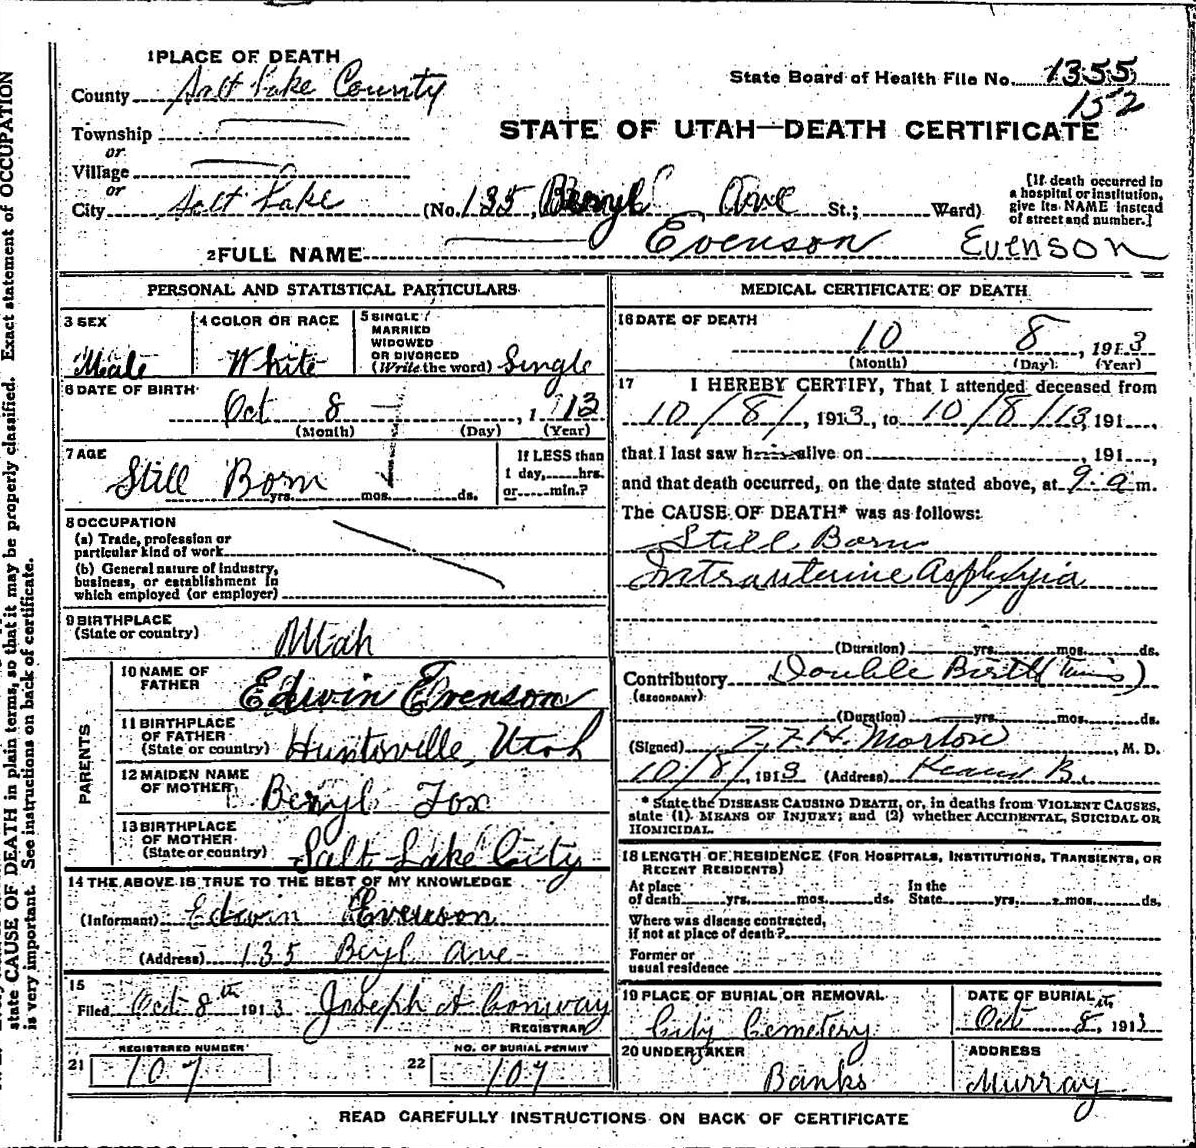 1 PLACE OF DEATH
County Salt Lake County
State Board of Health File No. 1355
152
Township
or
Village
or
STATE OF UTAH—DEATH CERTIFICATE
City Salt Lake (No. 135 Beryl Ave St.; Ward)
[If death occurred in
a hospital or institution,
give its NAME instead
of street and number.]
2 FULL NAME Evenson Evenson
PERSONAL AND STATISTICAL PARTICULARS
3 SEX Male
4 COLOR OR RACE White
5 SINGLE
MARRIED
WIDOWED
OR DIVORCED
(Write the word) Single
6 DATE OF BIRTH
Oct 8 , 1913
(Month) (Day) (Year)
7 AGE
Still Born yrs. mos. ds.
If LESS than
1 day, hrs.
or min.?
8 OCCUPATION
(a) Trade, profession or
particular kind of work
(b) General nature of industry,
business, or establishment in
which employed (or employer)
9 BIRTHPLACE
(State or country) Utah
PARENTS
10 NAME OF
FATHER Edwin Evenson
11 BIRTHPLACE
OF FATHER
(State or country) Huntsville, Utah
12 MAIDEN NAME
OF MOTHER Beryl Fox
13 BIRTHPLACE
OF MOTHER
(State or country) Salt Lake City
14 THE ABOVE IS TRUE TO THE BEST OF MY KNOWLEDGE
(Informant) Edwin Evenson
(Address) 135 Beryl Ave
15
Filed Oct 8th 1913 Joseph A Conway
REGISTRAR
21 REGISTERED NUMBER
107
22 NO. OF BURIAL PERMIT
107
MEDICAL CERTIFICATE OF DEATH
16 DATE OF DEATH
10 8 , 1913
(Month) (Day) (Year)
17 I HEREBY CERTIFY, That I attended deceased from
10/8/, 1913, to 10/8/13, 191
that I last saw h alive on , 191 ,
and that death occurred, on the date stated above, at 9 a m.
The CAUSE OF DEATH* was as follows:
Still Born
Intrauterine Asphyxia
(Duration) yrs. mos. ds.
Contributory Double Birth (Twins)
(SECONDARY)
(Duration) yrs. mos. ds.
(Signed) H. Morton , M. D.
10/8/, 1913 (Address)
* State the DISEASE CAUSING DEATH, or, in deaths from VIOLENT CAUSES,
state (1) MEANS OF INJURY; and (2) whether ACCIDENTAL, SUICIDAL OR
HOMICIDAL.
18 LENGTH OF RESIDENCE (FOR HOSPITALS, INSTITUTIONS, TRANSIENTS, OR
RECENT RESIDENTS)
At place
of death yrs. mos. ds.
In the
State yrs. mos. ds.
Where was disease contracted,
if not at place of death?
Former or
usual residence
19 PLACE OF BURIAL OR REMOVAL
City Cemetery
DATE OF BURIAL
Oct 8th, 1913
20 UNDERTAKER
Banks
ADDRESS
Murray
READ CAREFULLY INSTRUCTIONS ON BACK OF CERTIFICATE
state CAUSE OF DEATH in plain terms, so that it may be properly classified. Exact statement of OCCUPATION
is very important. See instructions on back of certificate.